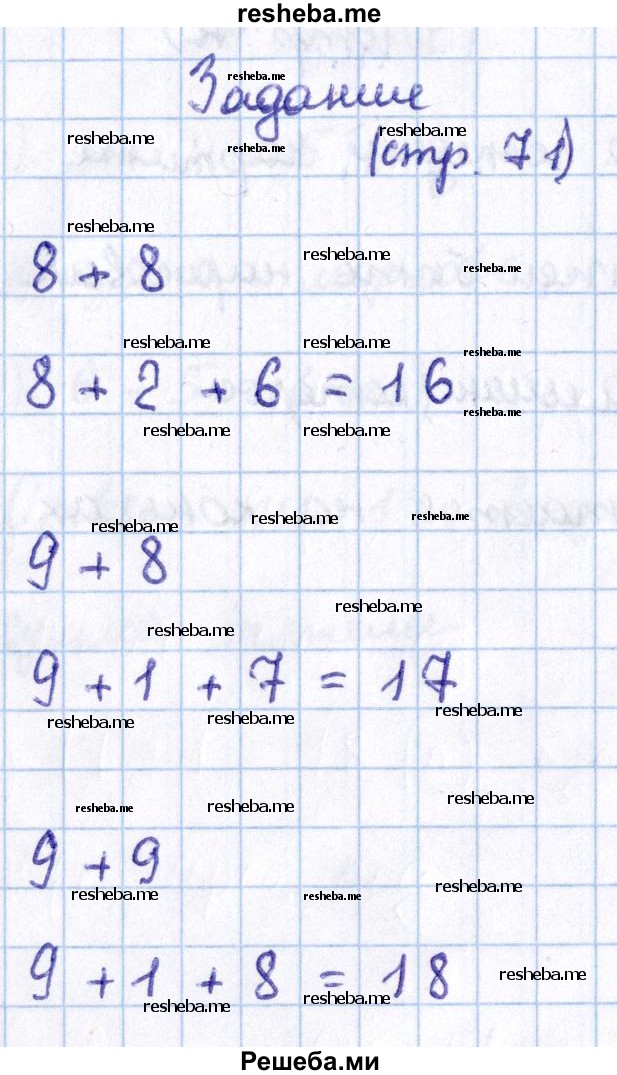 resheba.me
resheba.me
Задание
resheba.me resheba.me resheba.me
(стр. 71)
resheba.me
resheba.me resheba.me
8 + 8
resheba.me resheba.me resheba.me
8 + 2 + 6 = 16
resheba.me
resheba.me resheba.me
resheba.me resheba.me resheba.me
9 + 8
resheba.me
resheba.me
9 + 1 + 7 = 17
resheba.me resheba.me resheba.me
resheba.me resheba.me resheba.me
9 + 9
resheba.me resheba.me resheba.me
9 + 1 + 8 = 18
resheba.me
resheba.me resheba.me
Решеба.ми